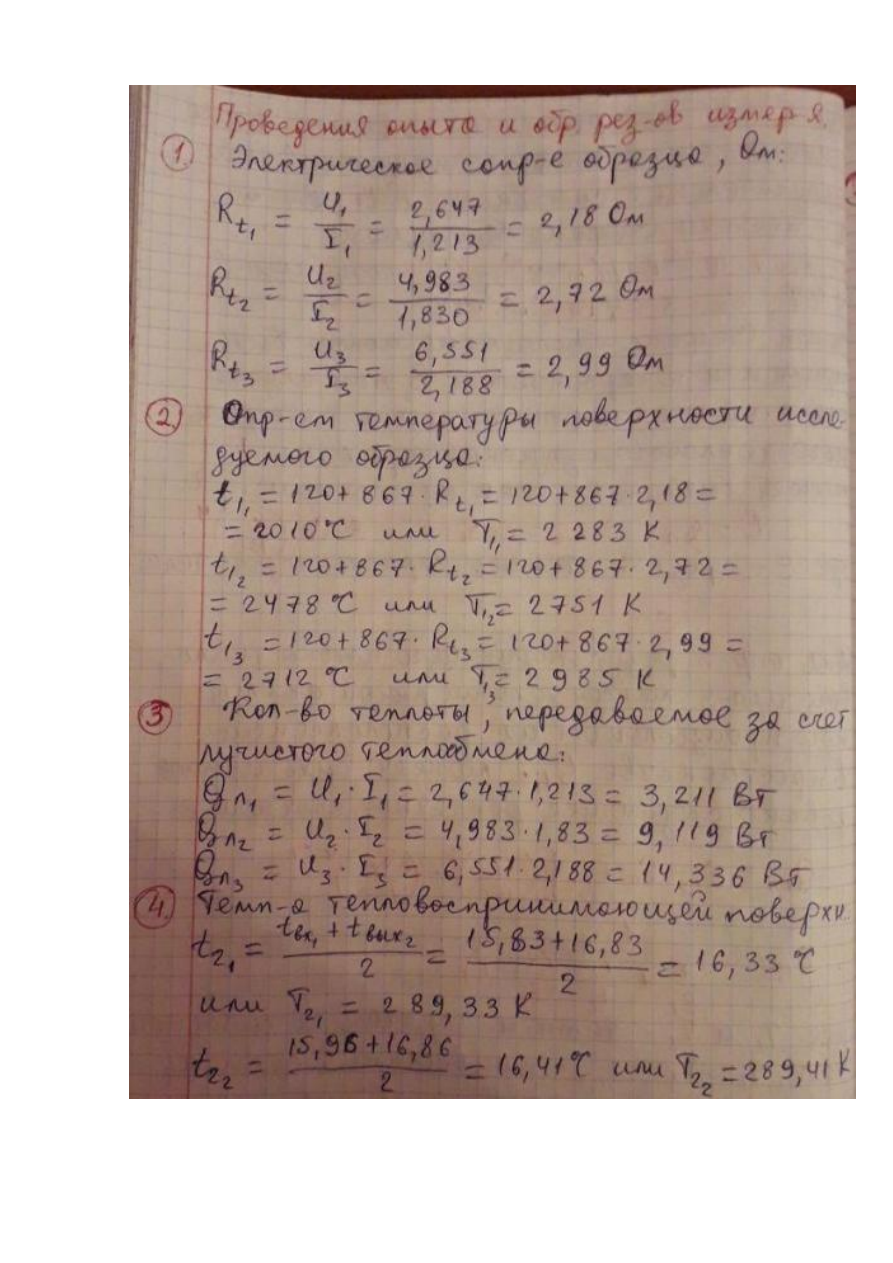 Проведения опыта и обр. рез-ов измер-я.
① Электрическое сопр-е образца, Ом:
R_t₁ = U₁/I₁ = 2,647/1,213 = 2,18 Ом
R_t₂ = U₂/I₂ = 4,983/1,830 = 2,72 Ом
R_t₃ = U₃/I₃ = 6,551/2,188 = 2,99 Ом
② Опр-ем температуры поверхности иссле-
дуемого образца:
t₁₁ = 120+867·R_t₁ = 120+867·2,18 =
= 2010°C или T₁₁ = 2 283 K
t₁₂ = 120+867·R_t₂ = 120+867·2,72 =
= 2478°C или T₁₂ = 2751 K
t₁₃ = 120+867·R_t₃ = 120+867·2,99 =
= 2712°C или T₁₃ = 2985 K
③ Кол-во теплоты, передаваемое за счет
лучистого теплообмена:
Qл₁ = U₁·I₁ = 2,647·1,213 = 3,211 Вт
Qл₂ = U₂·I₂ = 4,983·1,83 = 9,119 Вт
Qл₃ = U₃·I₃ = 6,551·2,188 = 14,336 Вт
④ Темп-а тепловоспринимающей поверхн.
t₂₁ = (tвх₁ + tвых₂)/2 = (15,83+16,83)/2 = 16,33 °C
или T₂₁ = 289,33 K
t₂₂ = (15,96+16,86)/2 = 16,41°C или T₂₂ = 289,41 K